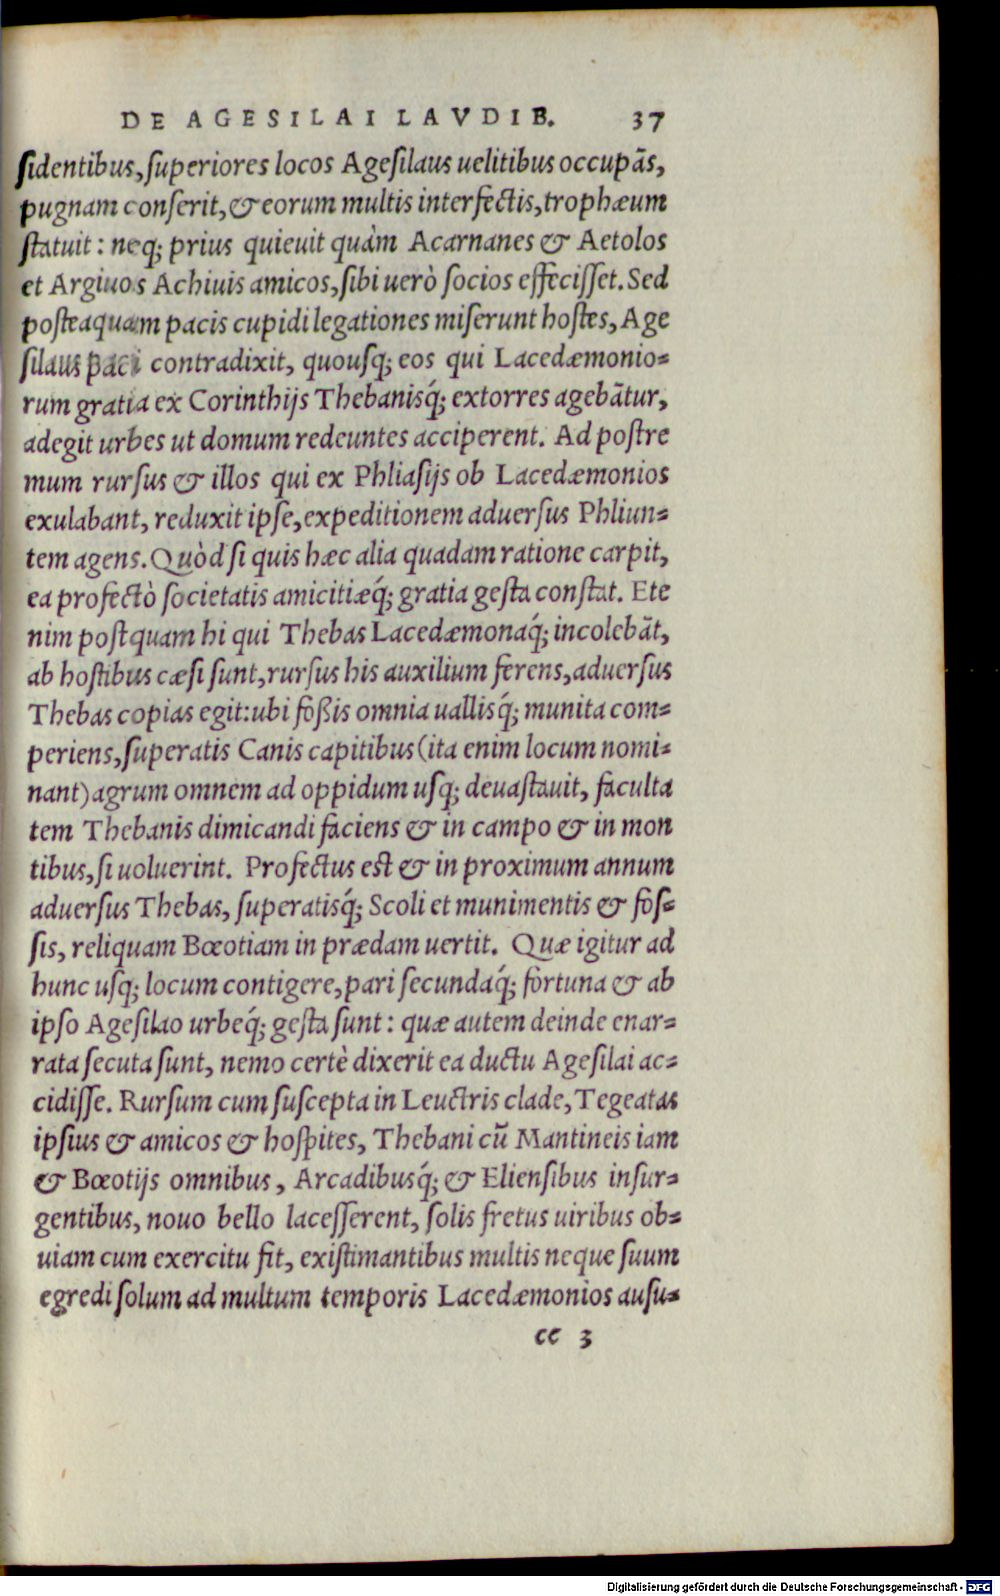 DE AGESILAI LAVDIB. 37
sidentibus, superiores locos Agesilaus uelitibus occupãs,
pugnam conserit, & eorum multis interfectis, trophæum
statuit: neq; prius quieuit quàm Acarnanes & Aetolos
et Argiuos Achiuis amicos, sibi uerò socios effecisset. Sed
posteaquam pacis cupidi legationes miserunt hostes, Age
silaus paci contradixit, quousq; eos qui Lacedæmonio-
rum gratia ex Corinthijs Thebanisq́; extorres agebãtur,
adegit urbes ut domum redeuntes acciperent. Ad postre
mum rursus & illos qui ex Phliasijs ob Lacedæmonios
exulabant, reduxit ipse, expeditionem aduersus Phliun-
tem agens. Quòd si quis hæc alia quadam ratione carpit,
ea profectò societatis amicitiæq́; gratia gesta constat. Ete
nim postquam hi qui Thebas Lacedæmonaq́; incolebãt,
ab hostibus cæsi sunt, rursus his auxilium ferens, aduersus
Thebas copias egit: ubi foßis omnia uallisq́; munita com-
periens, superatis Canis capitibus (ita enim locum nomi-
nant) agrum omnem ad oppidum usq; deuastauit, faculta
tem Thebanis dimicandi faciens & in campo & in mon
tibus, si uoluerint. Profectus est & in proximum annum
aduersus Thebas, superatisq́; Scoli et munimentis & fos-
sis, reliquam Bœotiam in prædam uertit. Quæ igitur ad
hunc usq; locum contigere, pari secundaq́; fortuna & ab
ipso Agesilao urbeq́; gesta sunt: quæ autem deinde enar-
rata secuta sunt, nemo certè dixerit ea ductu Agesilai ac-
cidisse. Rursum cum suscepta in Leuctris clade, Tegeatas
ipsius & amicos & hospites, Thebani cũ Mantineis iam
& Bœotijs omnibus, Arcadibusq́; & Eliensibus insur-
gentibus, nouo bello lacesserent, solis fretus uiribus ob-
uiam cum exercitu fit, existimantibus multis neque suum
egredi solum ad multum temporis Lacedæmonios ausu-
cc 3
Digitalisierung gefördert durch die Deutsche Forschungsgemeinschaft - DFG